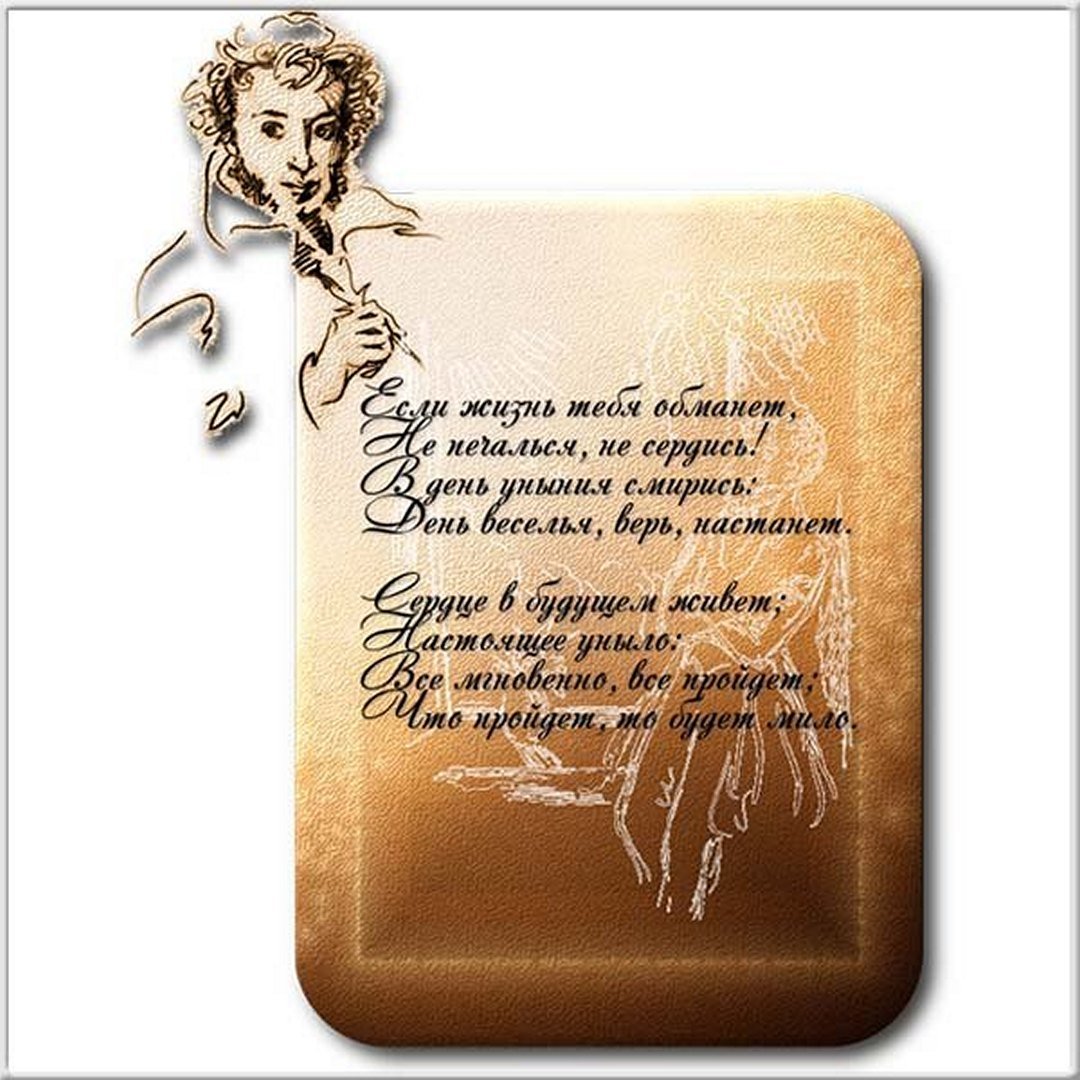 Если жизнь тебя обманет,
Не печалься, не сердись!
В день уныния смирись:
День веселья, верь, настанет.
Сердце в будущем живет;
Настоящее уныло:
Все мгновенно, все пройдет;
Что пройдет, то будет мило.